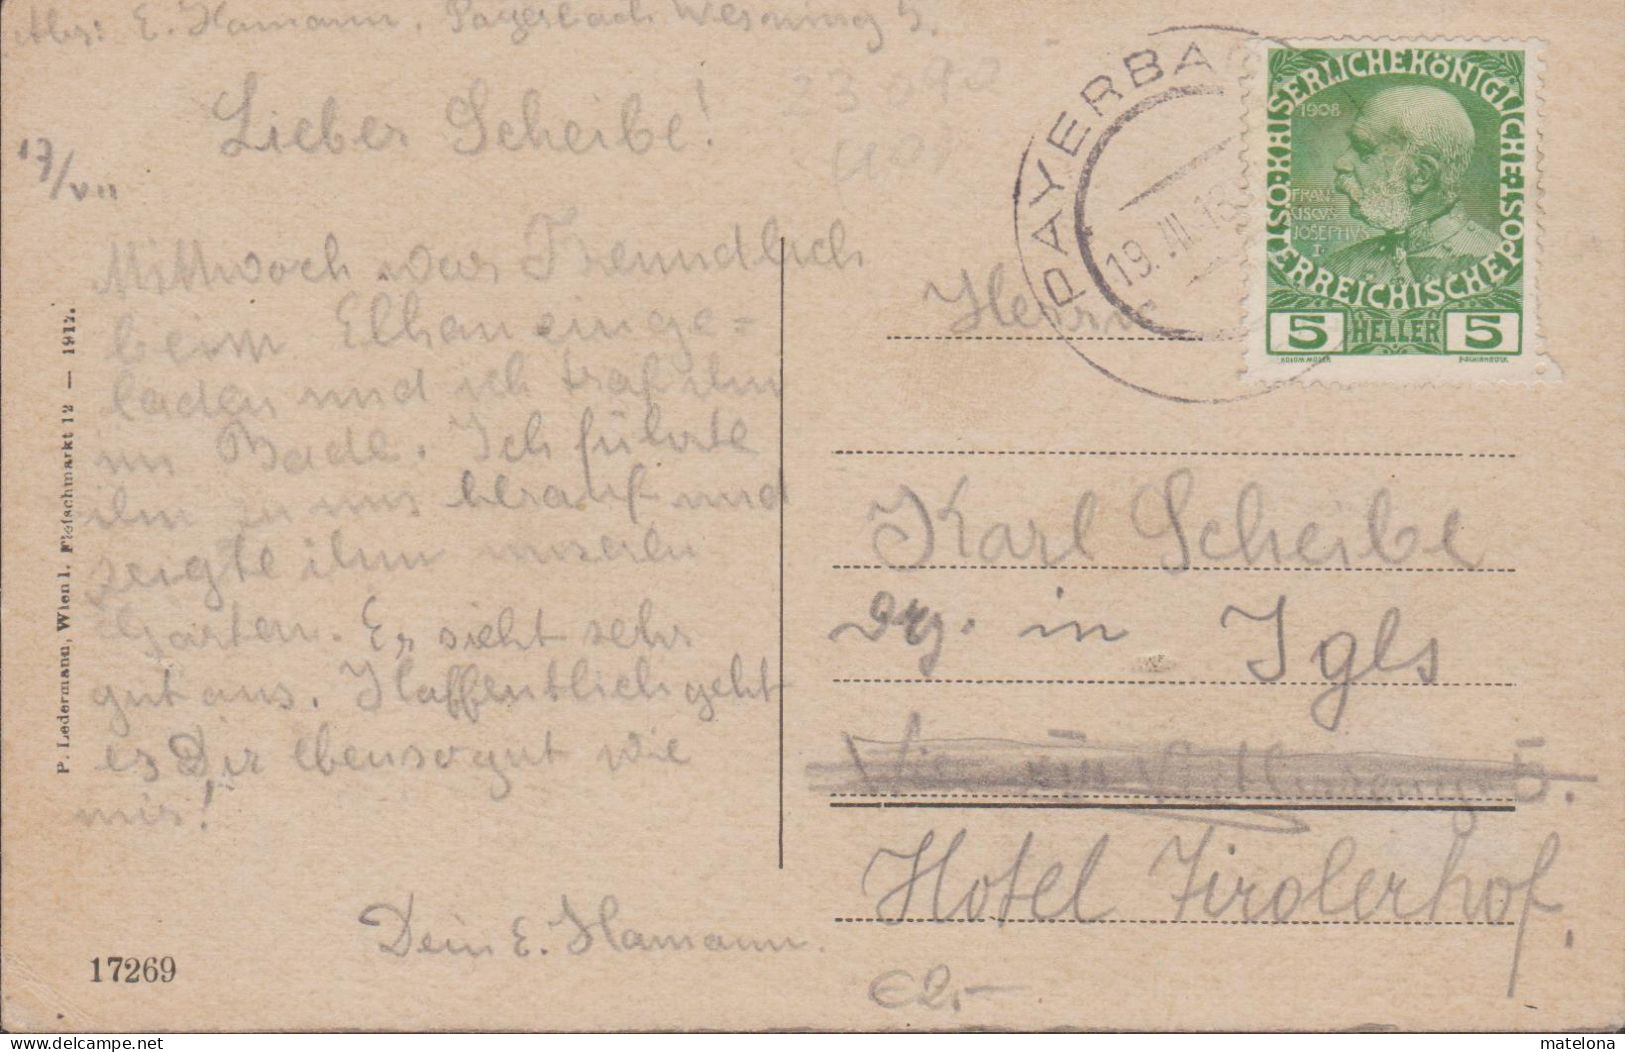 Abs: E. Hamann. Payerbach Werning 5.
Lieber Scheibe!
17/VII
Mittwoch war Freundlich
beim Elhan einge=
laden und ich traf ihn
im Bade. Ich führte
ihn zu uns herauf und
zeigte ihm unseren
Garten. Er sieht sehr
gut aus. Hoffentlich geht
es Dir ebensogut wie
mir!
Dein E. Hamann.
17269
P. Ledermann, Wien I. Fleischmarkt 12 — 1917.
PAYERBACH
19. VII. 13
KAISERLICHE KÖNIGLICHE ÖSTERREICHISCHE POST
1908
FRAN-
CISCVS
JOSEPHVS
I.
5 HELLER 5
KOLOM. MOSER
F. SCHIRNBÖCK
Herrn
Karl Scheibe
in Igls
5.
Hotel Tirolerhof.
€2.-
matelona